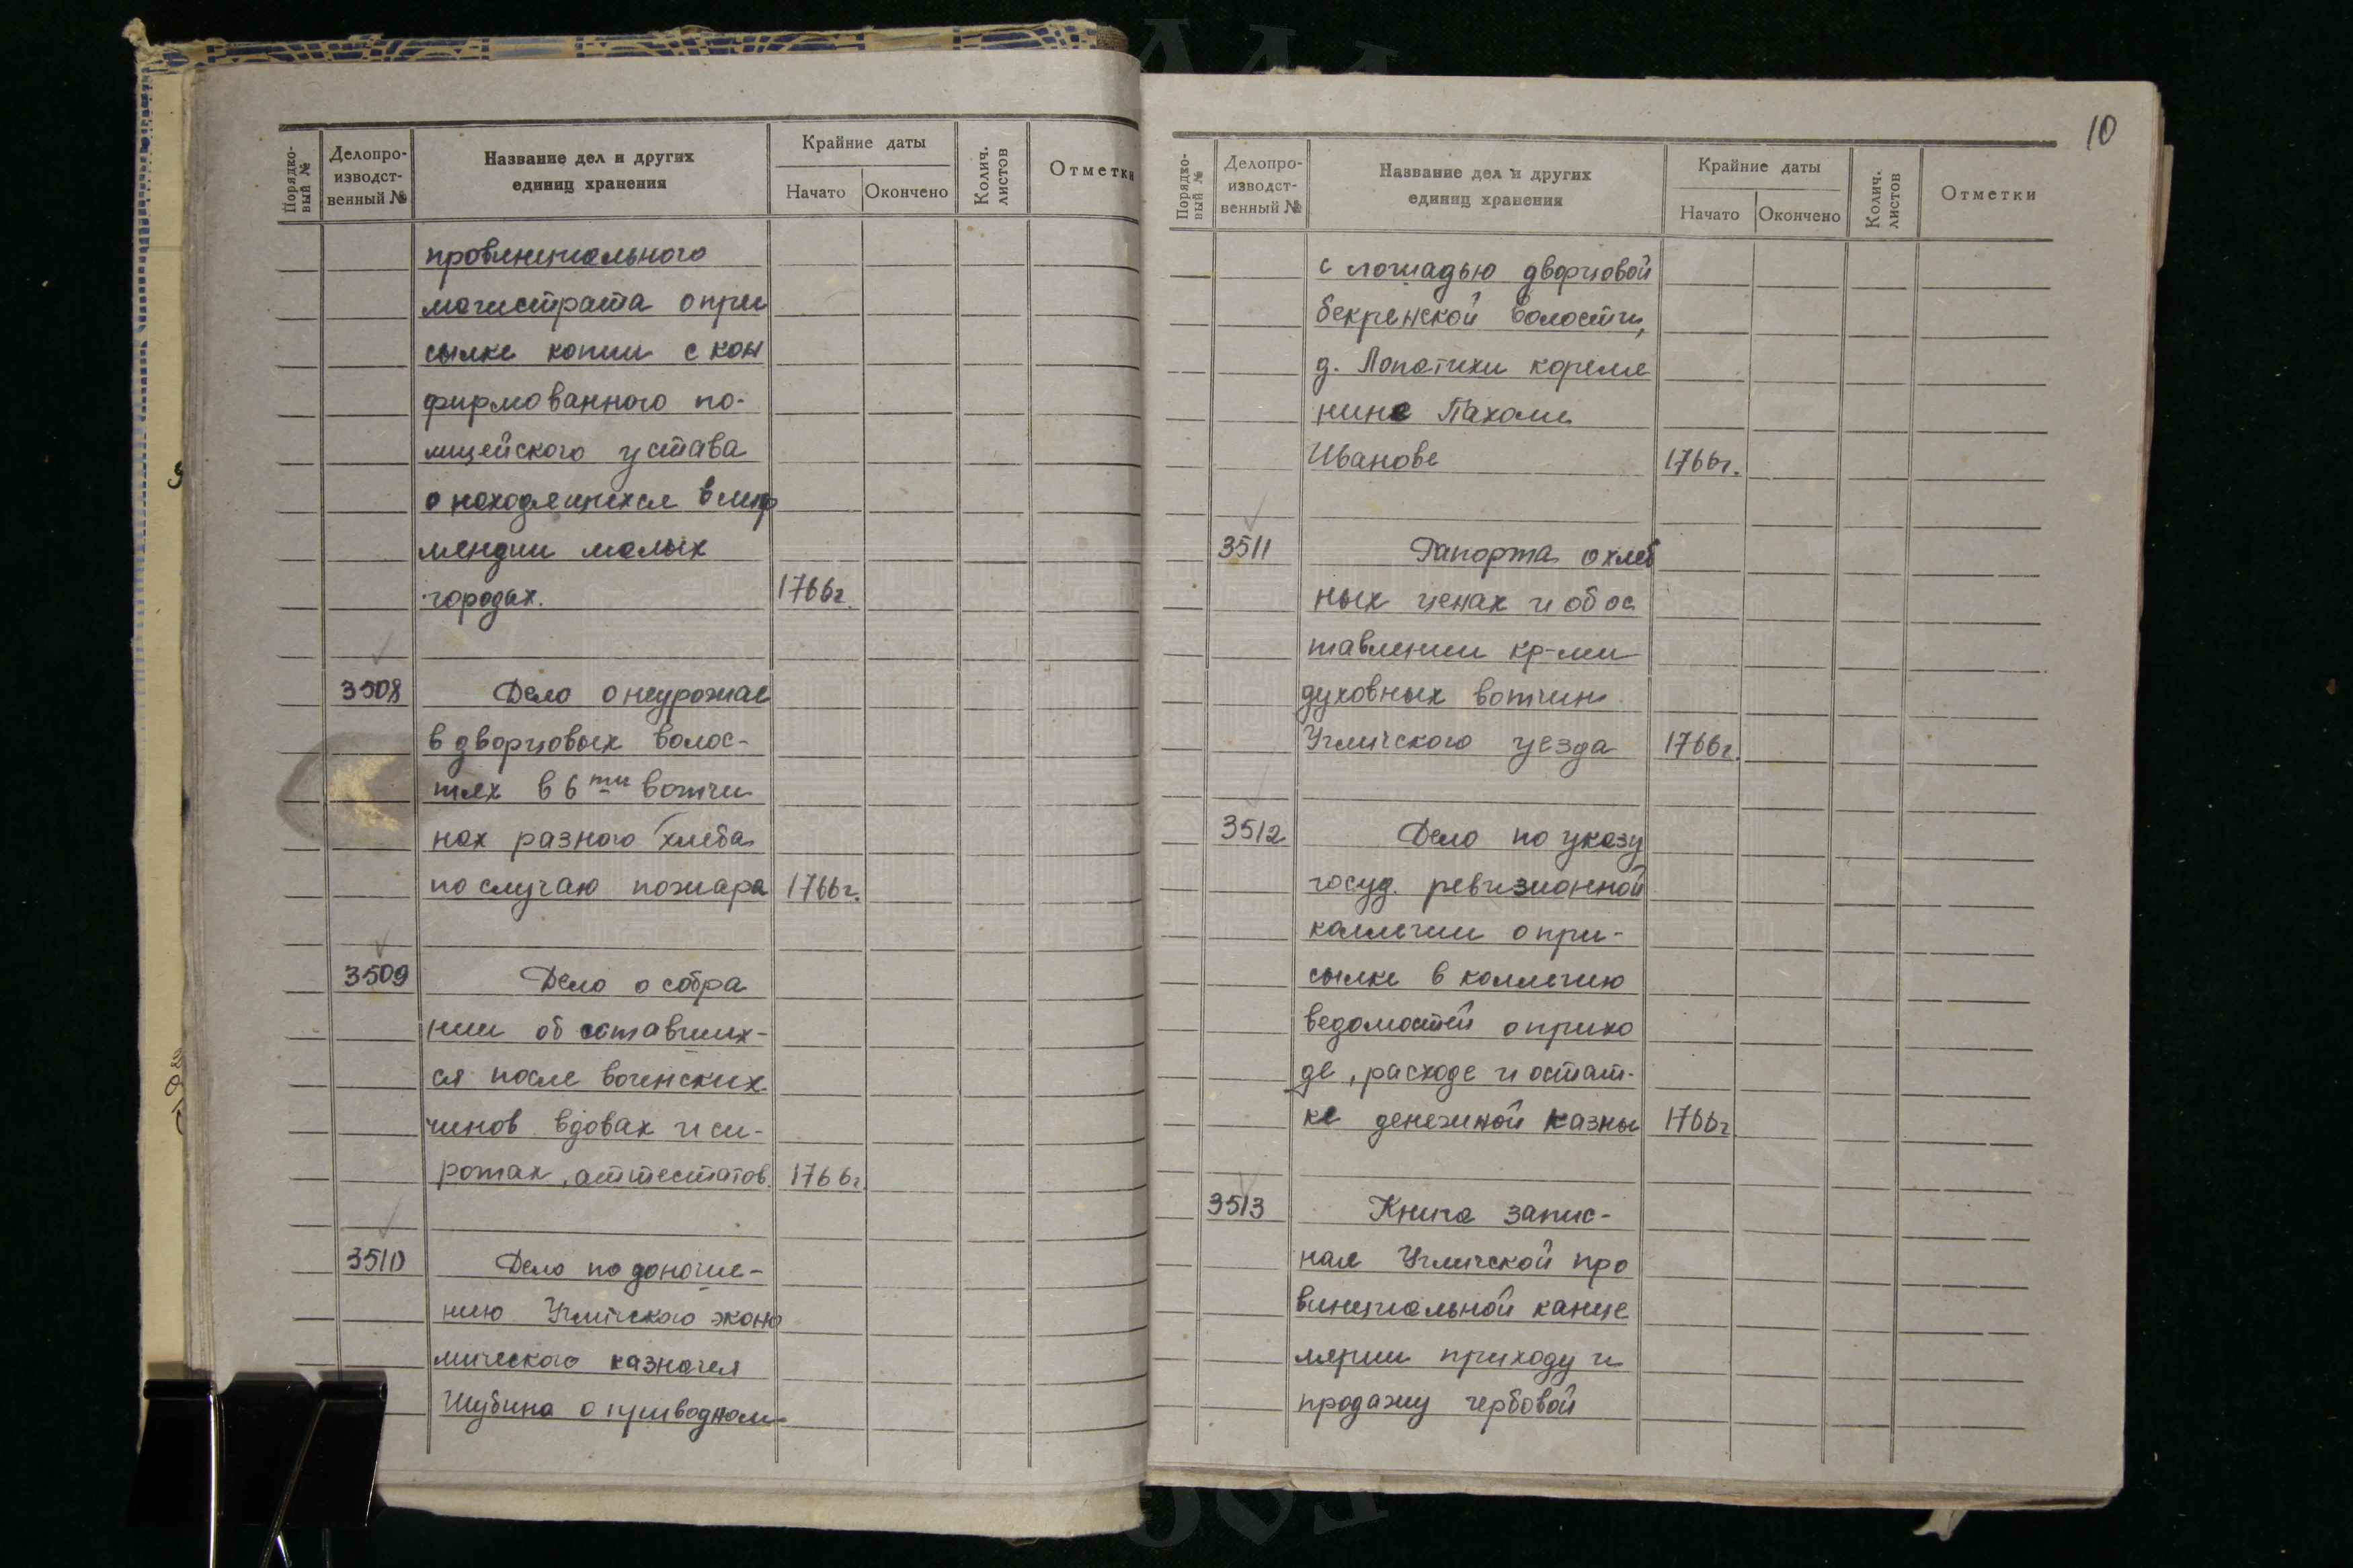 Порядко-
вый №
Делопро-
изводст-
венный №
Название дел и других
единиц хранения
Крайние даты
Начато
Окончено
Колич.
листов
Отметки
провинциального
магистрата о при
сылке копии с кон
фирмованного по-
лицейского устава
о находящихся в
мендии малых
городах. 1766г.
3508 Дело о неурожае
в дворцовых волос-
тях в 6ти вотчи
нах разного хлеба
по случаю пожара 1766г.
3509 Дело о собра
нии об оставших-
ся после воинских
чинов вдовах и си-
ротах, аттестатов. 1766г.
3510 Дело по доноше-
нию Угличского эконо
мического казначея
Шубина о приводном
10
Порядко-
вый №
Делопро-
изводст-
венный №
Название дел и других
единиц хранения
Крайние даты
Начато
Окончено
Колич.
листов
Отметки
с лошадью дворцовой
бекренской волости,
д. Лопатихи
Пахоми
Иванове 1766г.
3511 Рапорта о хлеб
ных ценах и об ос
тавлении кр-ми
духовных вотчин
Угличского уезда 1766г.
3512 Дело по указу
госуд. ревизионной
коллегии о при-
сылке в коллегию
ведомостей о прихо
де, расходе и остат-
ке денежной казны 1766г
3513 Книга запис-
ная Угличской про
винциальной канце
лярии приходу и
продажу гербовой